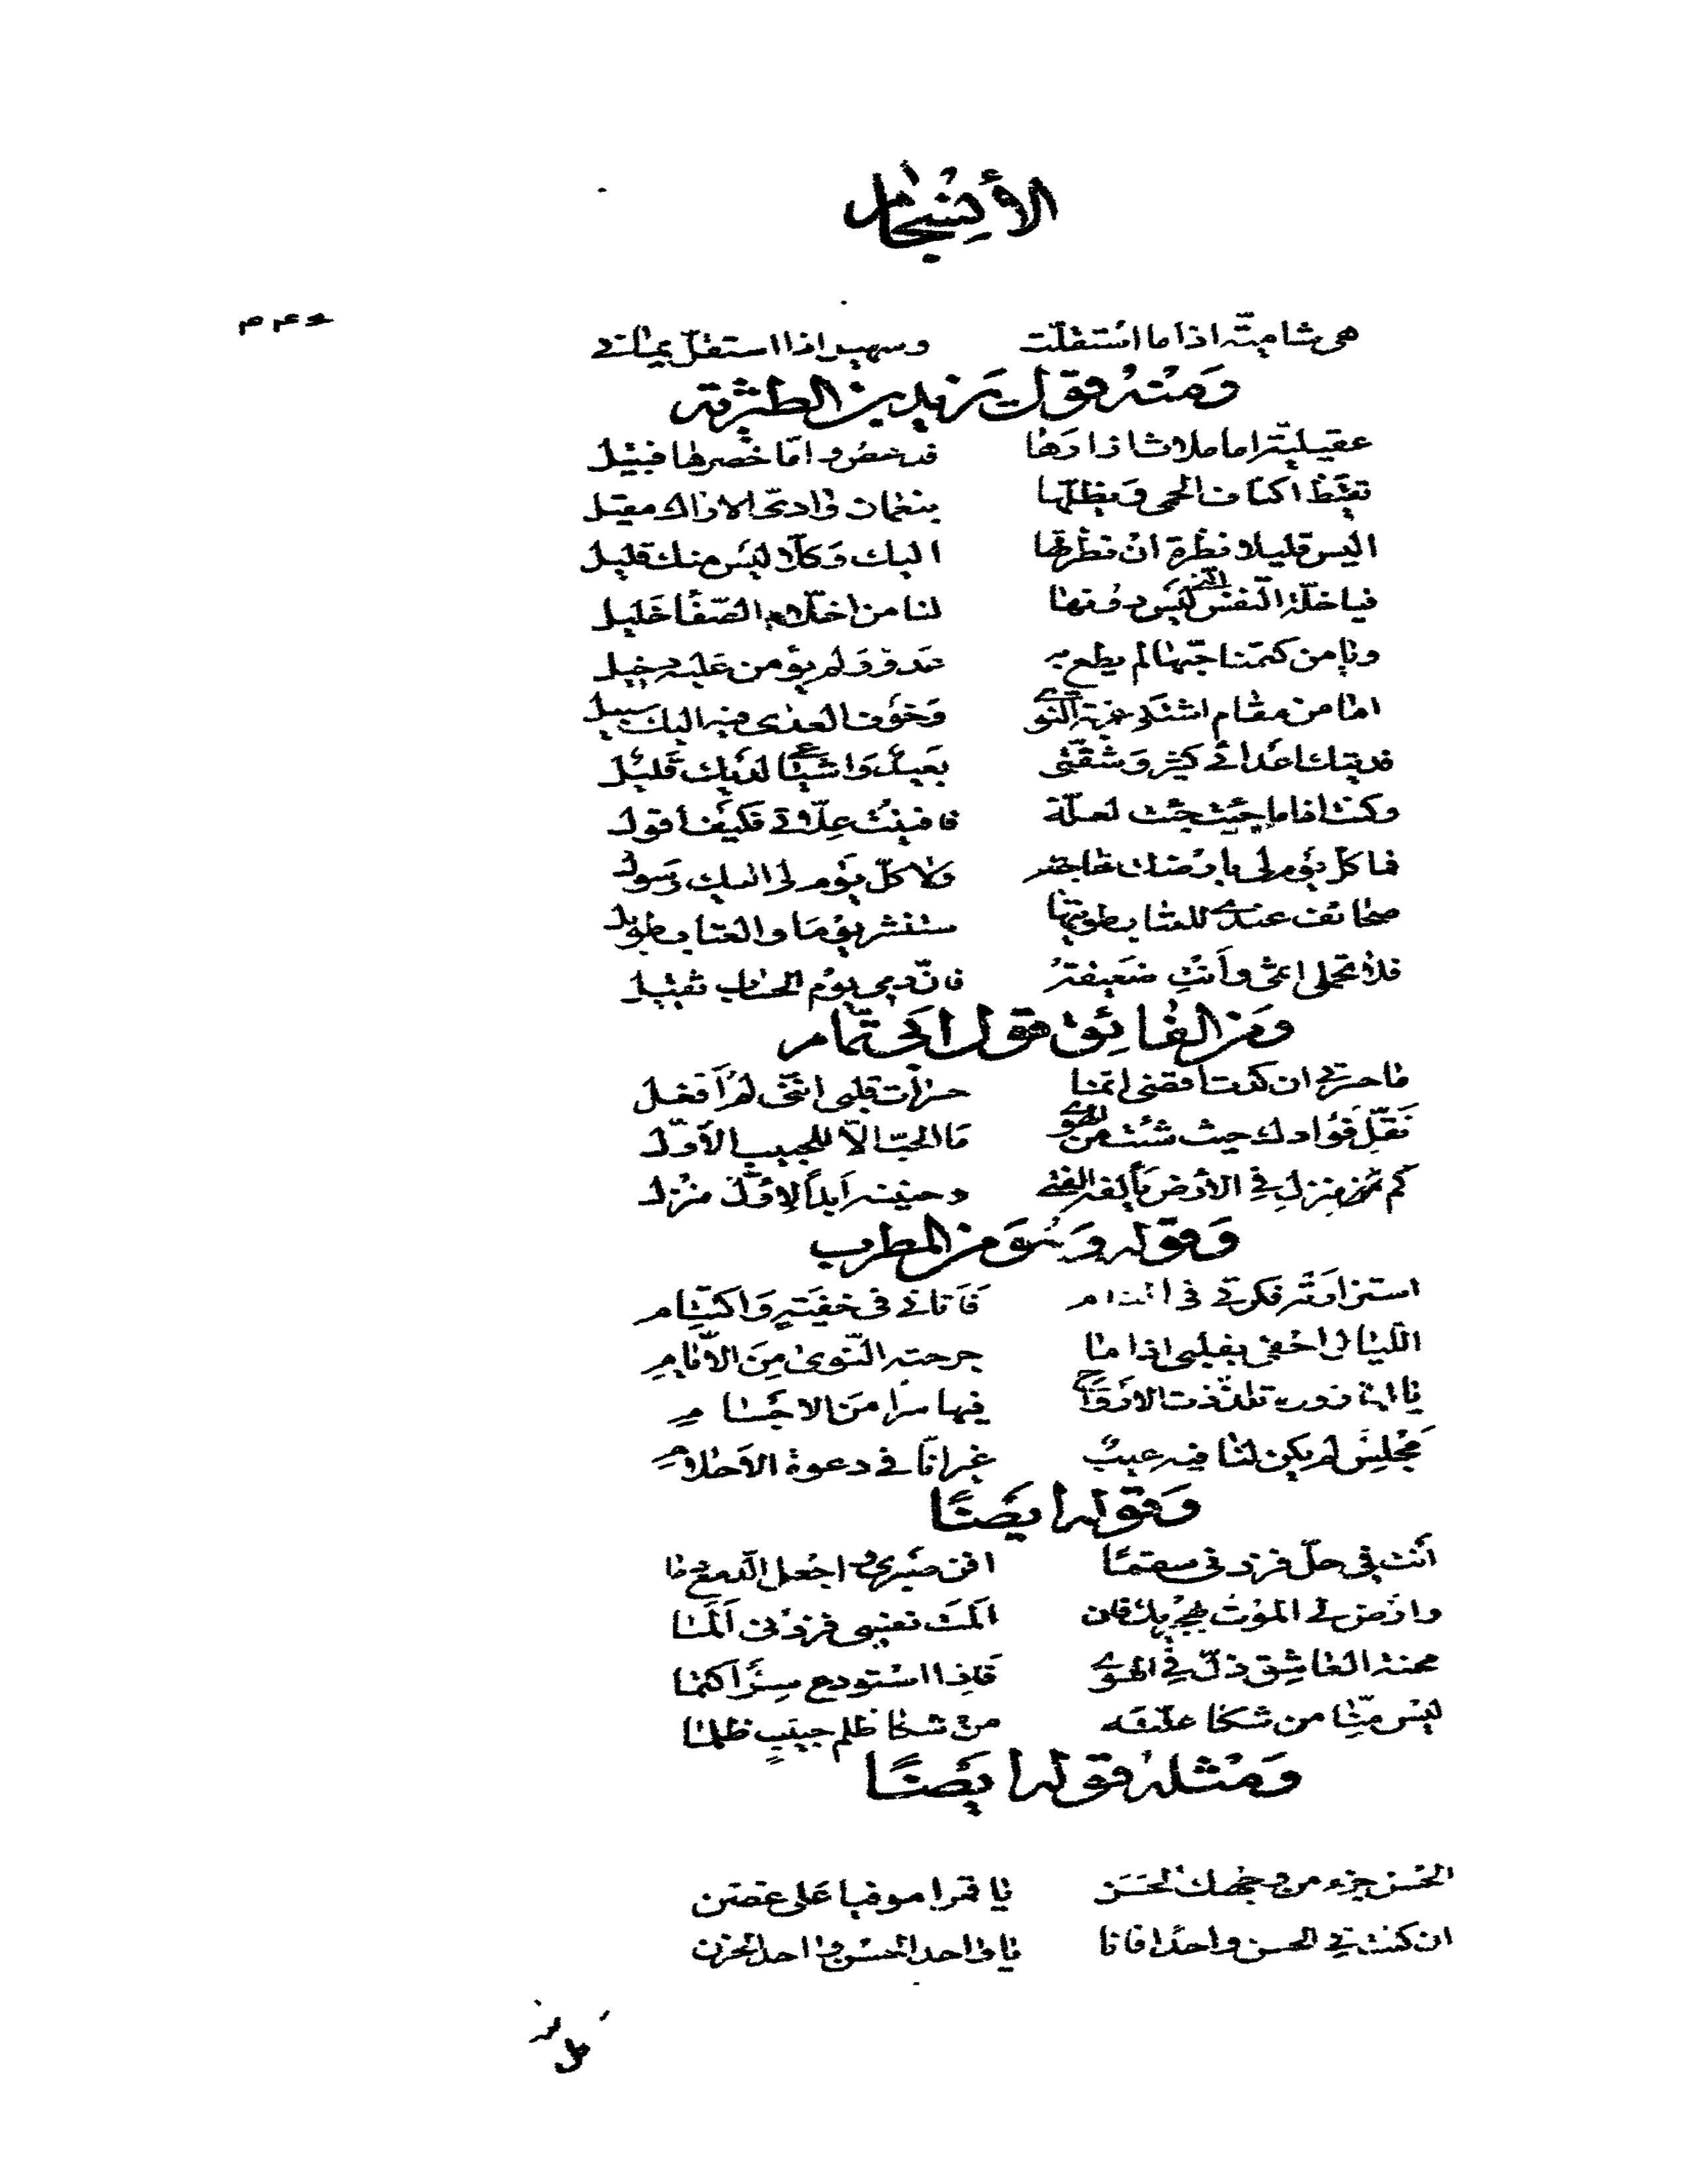 الأنسجام
هى شامية اذا ما استقلت وسهيل اذا استقل يمانى
ومنه قول يزيد بن الطثرية
عقيلية اما ملاث ازارها فدعص واما خصرها فبتيل
تقيظ اكناف الحمى ويظلها بنعمان فى وادى الاراك مقيل
اليس قليلا نظرة ان نظرتها اليك وكلا ليس منك قليل
فيا خلة النفس التى ليس دونها لنا من اخلاء الصفا خليل
ويا من كتمنا حبها لم يطع به عدو ولم يؤمن عليه دخيل
اما من مقام اشتكى غربة النوى وخوف العدى فيه اليك سبيل
فديتك اعدائى كثير وشقتى بعيد واشياعى لديك قليل
وكنت اذا ما جئت جئت لعلة فافنيت علاتى فكيف اقول
فما كل يوم لى بارضك حاجة ولا كل يوم لى اليك رسول
صحائف عندى للعتاب طويتها ستنشر يوما والعتاب طويل
فلا تحملى اثمى وأنت ضعيفة فان دمى يوم الحساب ثقيل
ومن الفائق قول ابى تمام
ما حسرتى ان كدت اقضى انما حسرات قلبى اننى لم أفعل
نقل فؤادك حيث شئت من الهوى ما الحب الا للحبيب الأول
كم من منزل فى الأرض يألفه الفتى وحنينه أبدا لأول منزل
وقوله وهو من المطرب
استزارته فكرتى فى المنام فأتانى فى خفية واكتتام
الليالى احفى بقلبى اذا ما جرحته النوى من الأيام
يا لها زورة تلذذت الارواح فيها سرا من الاجسام
مجلس لم يكن لنا فيه عيب غير انا فى دعوة الأحلام
وقوله ايضا
أنت فى حل فزدنى سقما افن صبرى واجعل الدمع دما
وارض لى الموت بهجريك فان ألمت نفسى فزدنى ألما
محنة العاشق ذل فى الهوى فاذا استودع سرا كتما
ليس منا من شكا علته من شكا ظلم حبيب ظلما
ومثله قوله ايضا
الحسن جزء من وجهك الحسن يا قمرا موفيا على غصن
ان كنت فى الحسن واحدا فانا يا واحد الحسن واحد الحزن